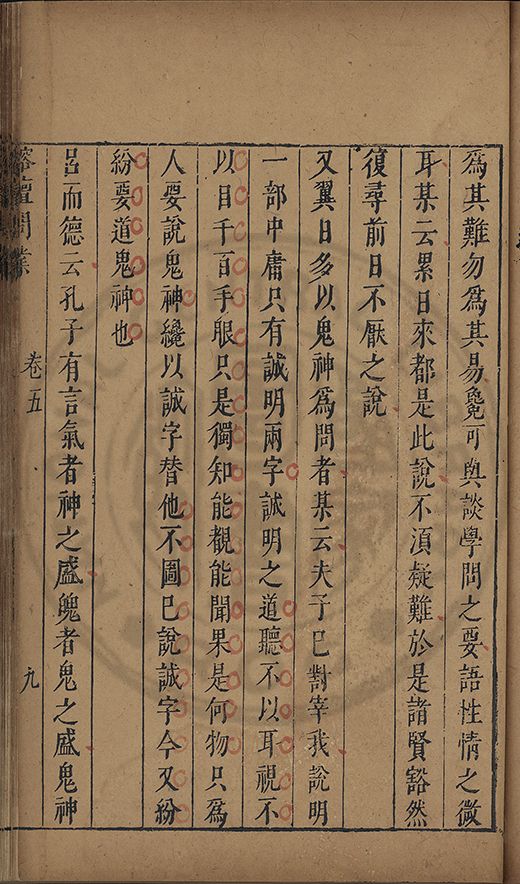 爲其難勿爲其易堯可與談學問之要語性情之微
耳某云累日來都是此說不須疑難於是諸賢豁然
復尋前日不厭之說
又翼日多以鬼神爲問者某云夫子已對宰我說明
一部中庸只有誠明兩字誠明之道聽不以耳視不
以目千百手眼只是獨知能覩能聞果是何物只爲
人要說鬼神纔以誠字替他不圖已說誠字今又紛
紛要道鬼神也
呂而德云孔子有言氣者神之盛魄者鬼之盛鬼神
榕壇問業
卷五
九